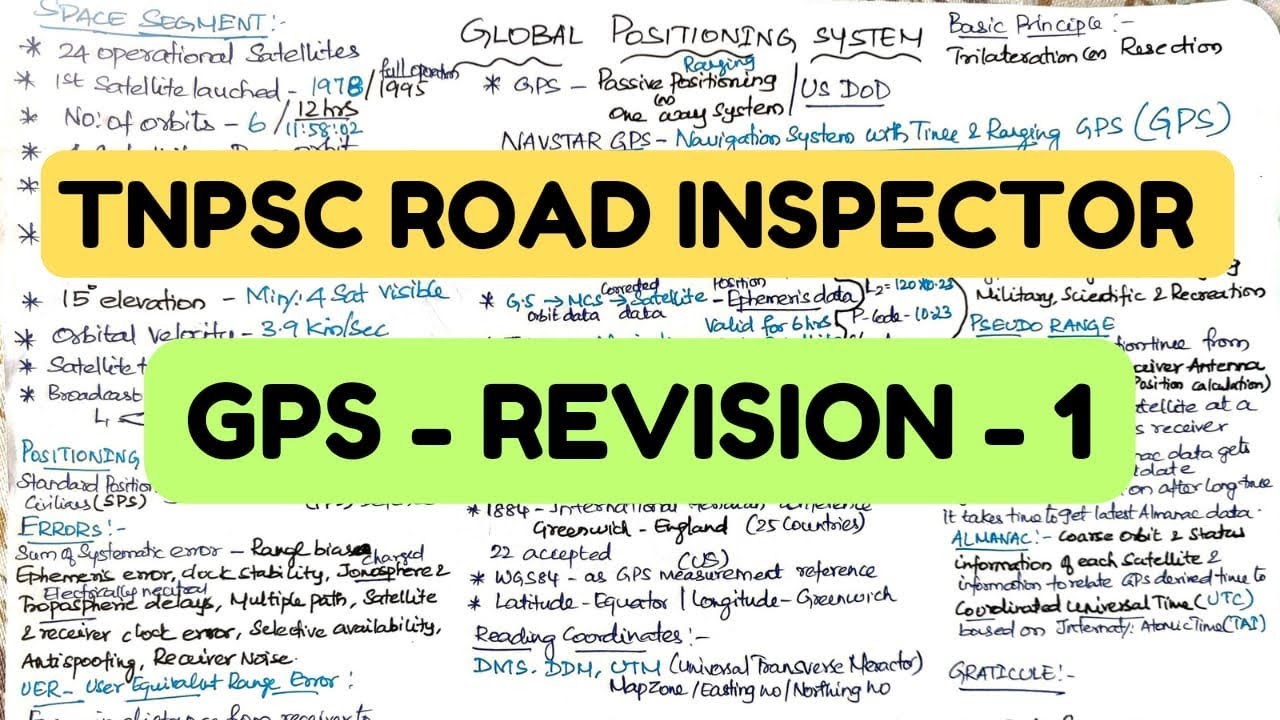 SPACE SEGMENT:-
* 24 operational Satellites
* 1st Satellite lauched - 1978 / full operation 1995
* No: of orbits - 6 / 12 hrs
11:58:02
GLOBAL POSITIONING SYSTEM
Ranging
* GPS - Passive Positioning / US DoD
(or)
One way System
NAVSTAR GPS - Navigation System with Time & Ranging GPS (GPS)
Basic Principle:-
Trilateration (or) Resection
TNPSC ROAD INSPECTOR
* 15° elevation - Min: 4 Sat visible
* Orbital Velocity - 3.9 Km/sec
* Satellite
* Broadcast
L1
corrected Position
* G.S → MCS → Satellite - Ephemeris data
orbit data data
Valid for 6 hrs
L2 = 120×10.23
P-Code - 10.23
Military, Scientific & Recreation
PSEUDO RANGE
time from
Antenna
Position calculation)
at a
receiver
data gets
after long time
it takes time to get latest Almanac data.
GPS - REVISION - 1
POSITIONING
Standard Position
Civilians (SPS)
ERRORS:-
Sum of Systematic error - Range biase
charged
Ephemeris error, clock stability, Ionosphere &
Electrically neutral
Tropospheric delays, Multiple path, Satellite
& receiver clock error, Selective availability,
Antispoofing, Receiver Noise.
UER - User Equivalat Range Error:
* 1884 - International
Greenwich - England (25 Countries)
22 accepted (US)
* WGS84 - as GPS measurement reference
* Latitude - Equator / Longitude - Greenwich
Reading Coordinates:-
DMS, DDM, UTM (Universal Transverse Meractor)
Map Zone / Easting no / Northing no
ALMANAC:- Coarse Orbit & Status
information of each Satellite &
information to relate GPS derived time to
Coordinated Universal Time (UTC)
based on Internaty: Atomic Time (TAI)
GRATICULE:-